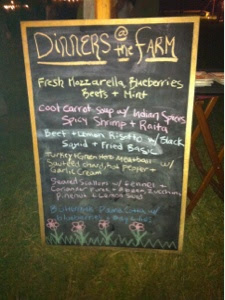 DINNERS @ the FARM
Fresh Mozzarella Blueberries
Beets + Mint
Cool Carrot Soup w/ Indian Spices
Spicy Shrimp + Raita
Beef + Lemon Risotto w/ Black
Squid + Fried Basil
Turkey + Green Herb Meatballs w/
Sauteed Chard, Hot Pepper +
Garlic Cream
Seared Scallops w/ Fennel +
Coriander Zucchini,
Buttermilk Panna Cotta w/
Blueberries +